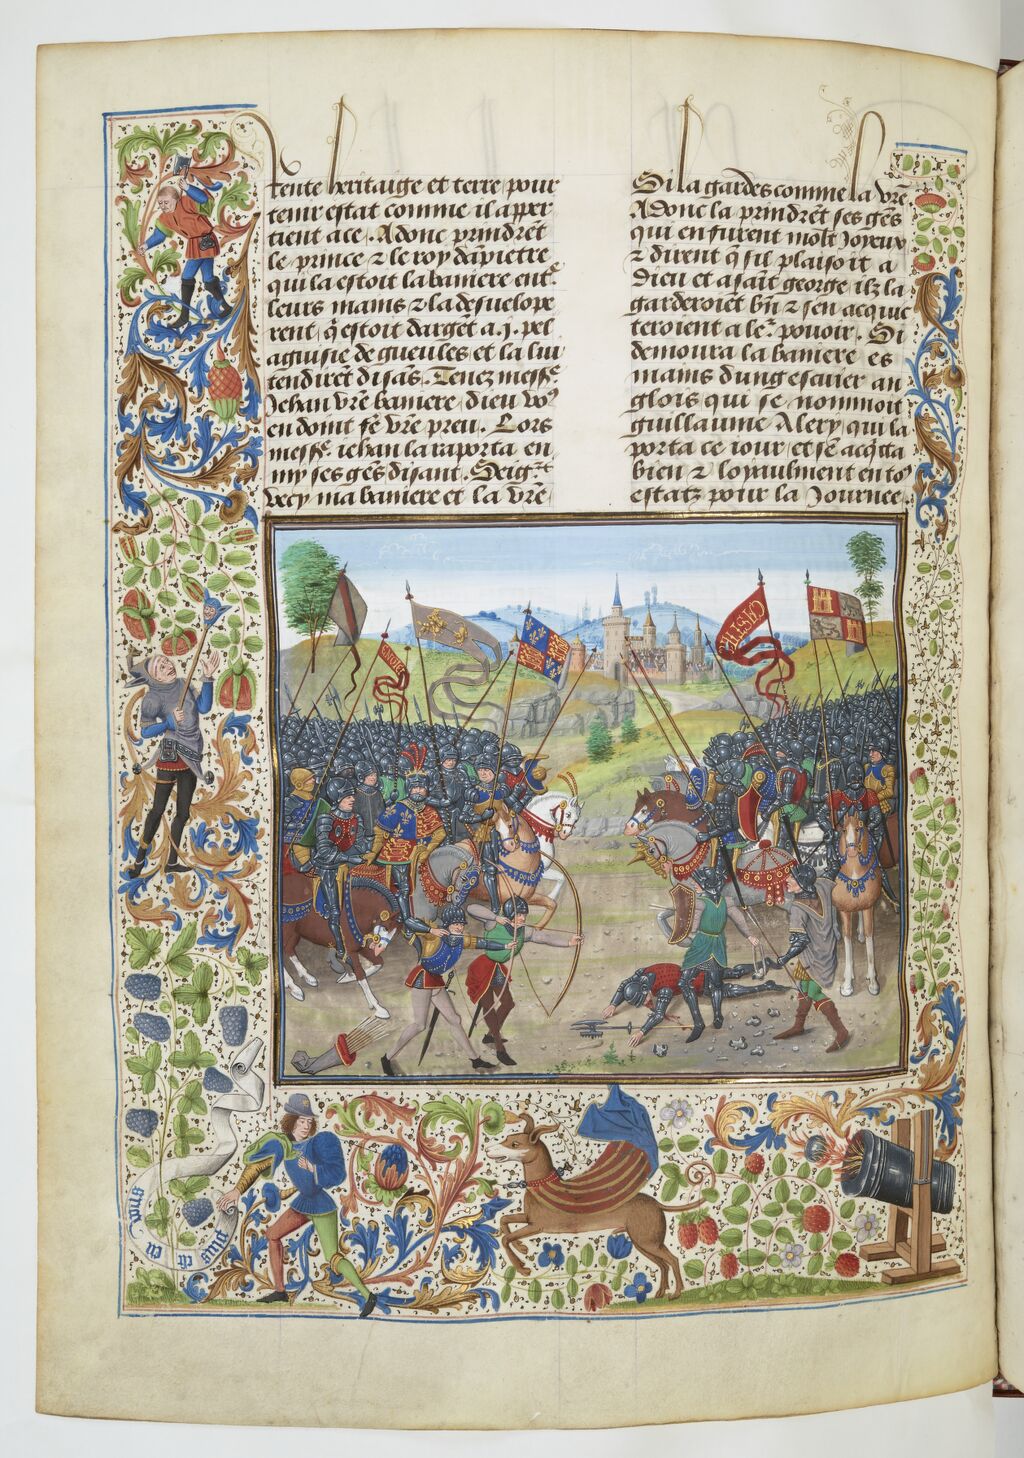 tente heritaige et terre pour
tenir estat comme il apper
tient a ce . Adonc prindret
le prince z le roy dampietre
qui la estoit la baniere entˢ
leurs mains z la desuelope
rent , q̃ estoit dargẽt a .j. pel
aguisie de gueules et la lui
tendirẽt disãs . Tenez messˢ
Jehan vr̃e baniere / dieu voꝰ
en doinit fẽ vr̃e preu . Lors
messˢ iehan la raporta en
my ses gẽs disant . Seigˢ
vecy ma baniere et la vr̃e
Si la gardes comme la vr̃e
Adonc la prindrẽt ses gẽs
qui en furent molt Joyeux
z dirent q̃ sil plaisoit a
dieu et a sait george ilz la
garderoiẽt bñ z sen acquic
teroient a leˢ pouoir . Si
demoura la baniere es
mains dung escuier an
glois qui se nommoit
guillaume Alery , qui la
porta ce iour , et sẽ acq̃tta
bien z loyaulment en toˢ
estatz pour la Journee .
CASTILLE
plus